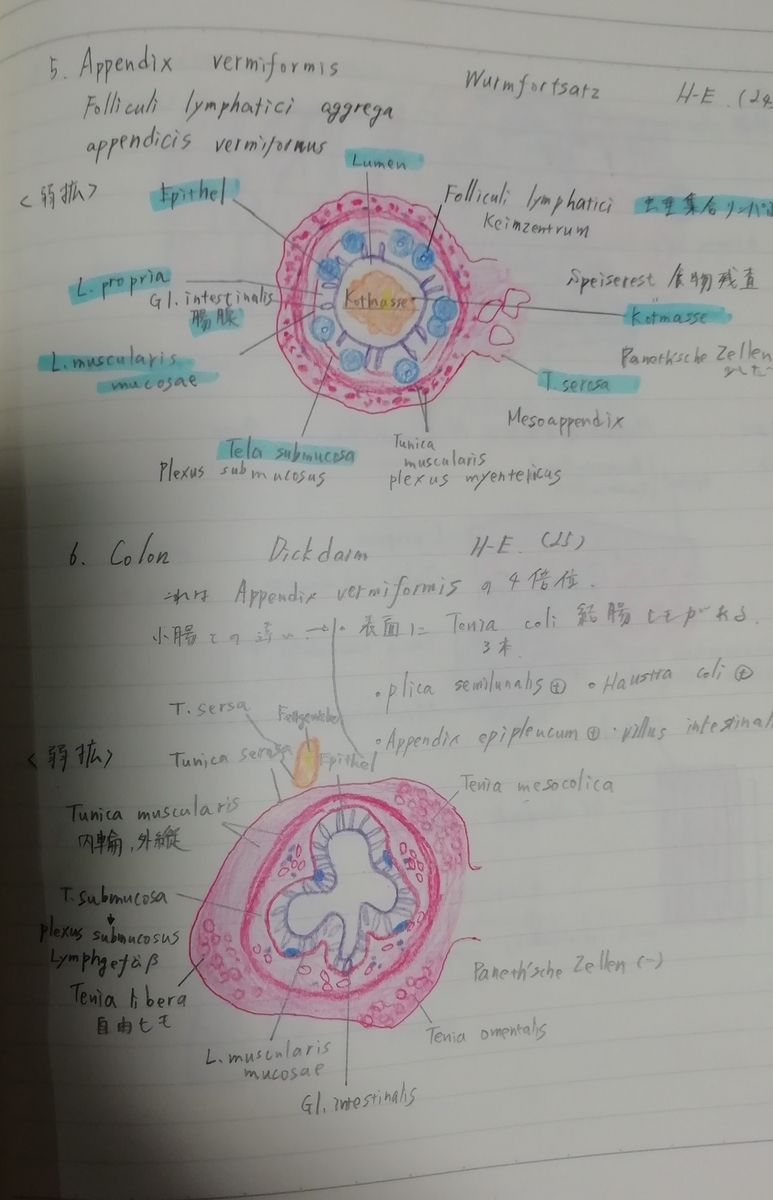 5. Appendix vermiformis
Wurmfortsatz H-E. (24
Folliculi lymphatici aggrega
appendicis vermiformus
<弱拡>
Lumen
Epithel
Folliculi lymphatici 虫垂集合リンパ
Keimzentrum
L. propria
Gl. intestinalis
腸腺
Kotmasse
Speiserest 食物残査
Kotmasse
L. muscularis
mucosae
Paneth'sche Zellen
T. serosa
Mesoappendix
Tela submucosa
Plexus submucosus
Tunica
muscularis
plexus myentericus
6. Colon Dickdarm H-E. (25)
これは Appendix vermiformis の 4倍位.
小腸との違い → 表面に Tenia coli 結腸ヒモがある.
3本
・plica semilunalis ⊕ ・Haustra coli ⊕
・Appendix epipleucum ⊕ ・villus intestinal
<弱拡>
T. sersa
Fettgewebe
Tunica serosa
Epithel
Tenia mesocolica
Tunica muscularis
内輪, 外縦
T. submucosa
↓
plexus submucosus
Lymphgefäβ
Tenia libera
自由ヒモ
Paneth'sche Zellen (-)
Tenia omentalis
L. muscularis
mucosae
Gl. intestinalis